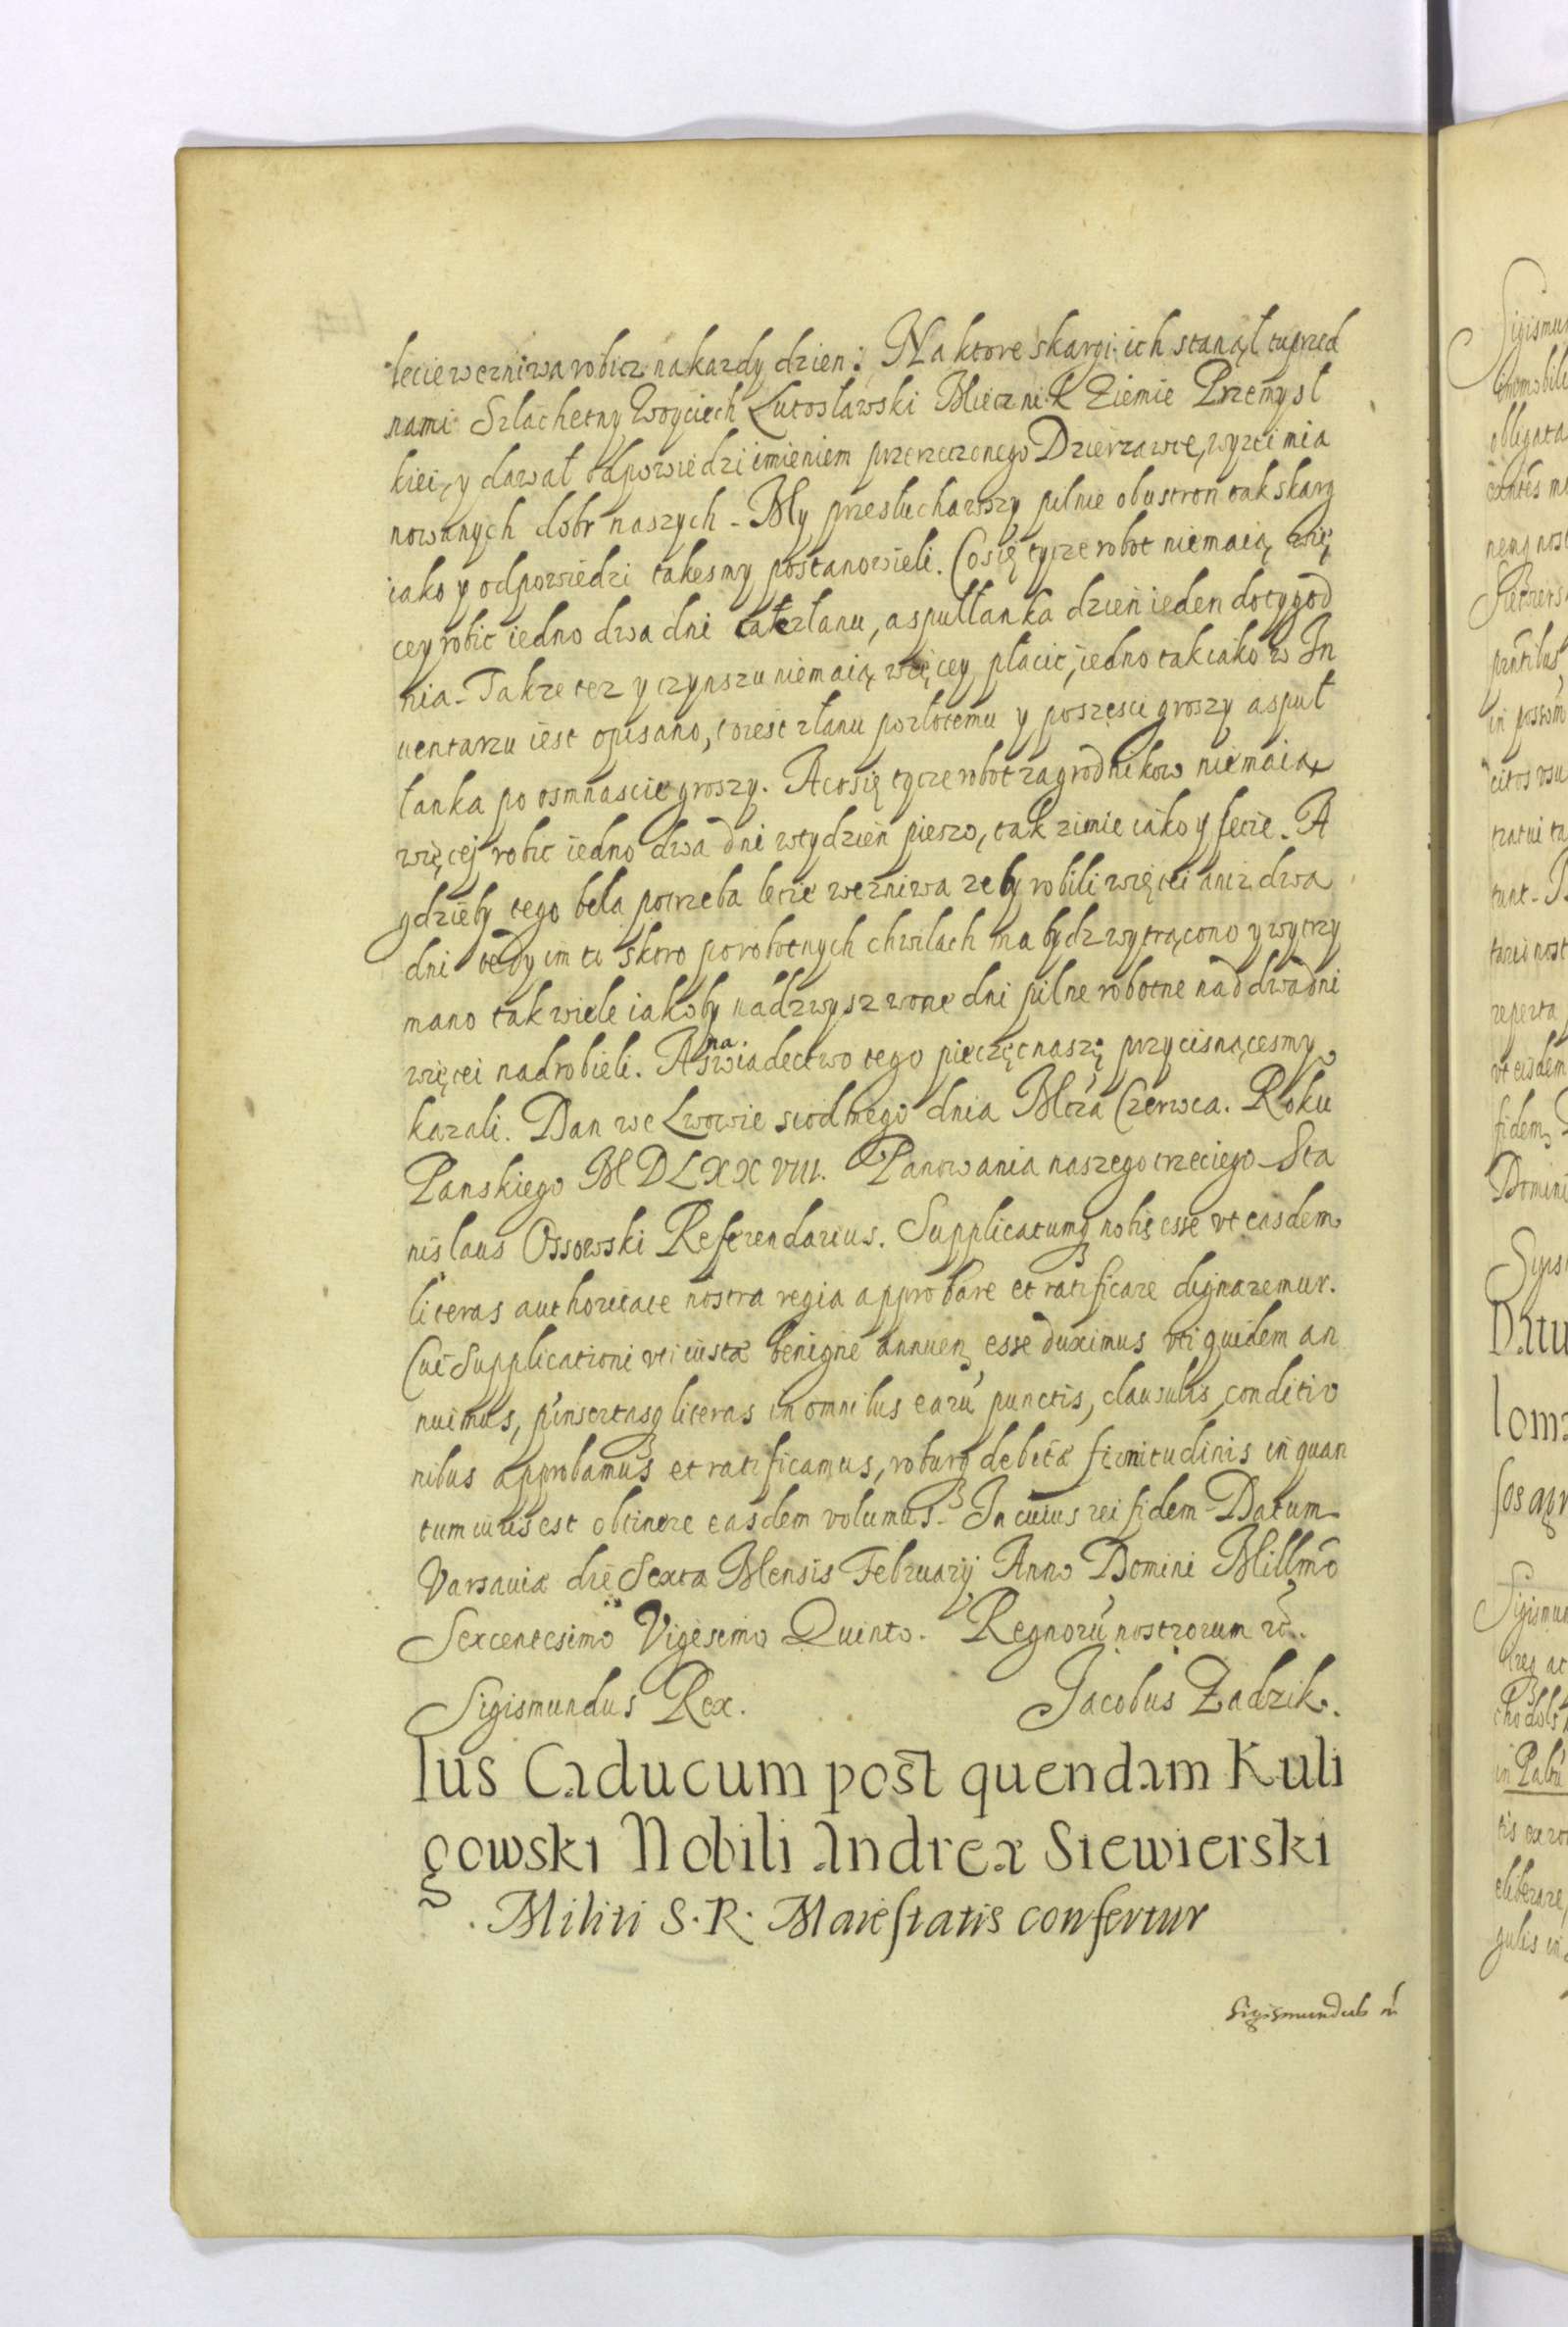 lecie wezniwa robicz na kazdy dzien: Na ktore skargi ich stanął tu przed
nami Szlachetny Woyciech Lutosławski Miecznik Ziemie Przemysl
kiei, y dawał odpowiedzi imieniem przerzeczonego Dzierzawce, wyzei mia
nowanych dobr naszych - My przesłuchawszy pilnie obu stron tak skarg
iako y odpowiedzi takesmy postanowieli. Co się tycze robot niemaią wię
cey robic iedno dwa dni całełanu, a spułłanka dzien ieden do tygod
nia - Takze tez y czynszu niemaią więcey płacic, iedno tak iako w In
uentarzu iest opisano, to iest złanu po złotemu y po szesci groszy a spuł
łanka po osmnascie groszy. A co się tycze robot zagrodnikow niemaią
więcej robic iedno dwa dni wtydzien pieszo, tak zimie iako y lecie - A
gdzieby tego beła potrzeba lecie wezniwa zeby robili więcei aniz dwa
dni tedy im ti skoro po robotnych chwilach ma bydz wytrącono y wytrzy
mano tak wiele iakoby nadzwysz wone dni pilne robotne nad dwa dni
więcei nadrobieli. A na swiadectwo tego pieczęc naszę przycisnącesmy
kazali. Dan we Lwowie siodmego dnia Mcza Czerwca. Roku
Panskiego MDLXXVIII. Panowania naszego trzeciego - Sta
nislaus Ossowski Referendarius. Supplicatumq nobis esse vt easdem
literas authoritate nostra regia approbare et ratificare dignaremur.
Cui Supplicationi vti iustæ benigne annuen esse duximus vti quidem an
nuimus, p'insertasq literas in omnibus earu punctis, clausulis, conditio
nibus approbamus et ratificamus, roburq debitæ firmitudinis in quan
tum iuris est obtinere easdem volumus. In cuius rei fidem - Datum
Varsauiæ die Sexta Mensis February Anno Domini Millmo
Sexcentesimo Vigesimo Quinto. Regnoru nostrorum
Sigismundus Rex. Jacobus Zadzik.
Ius Caducum post quendam Kuli
gowski Nobili Andreæ Siewierski
Militi S. R. Maiestatis confertur
Sigismundus